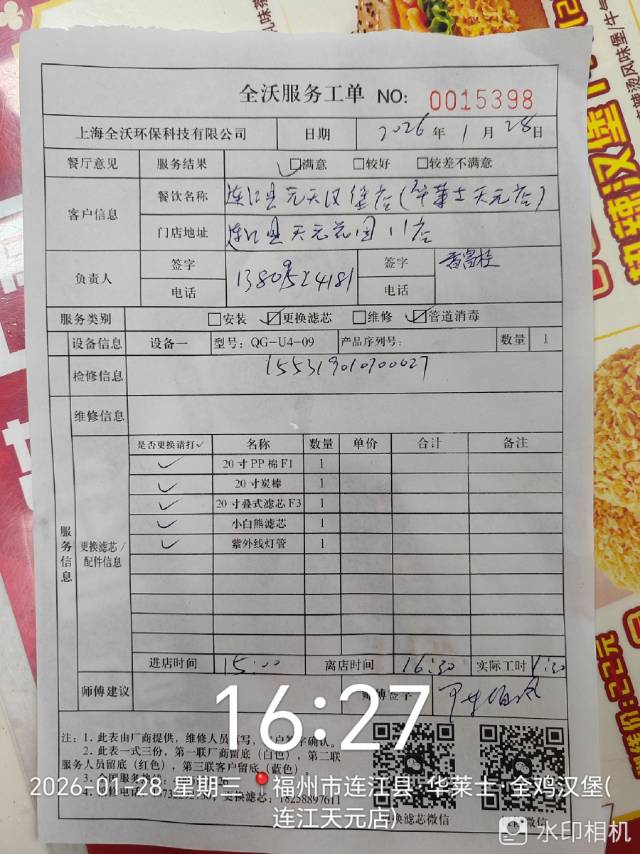 全沃服务工单 NO: 0015398
上海全沃环保科技有限公司 日期 2026年 1月 28日
餐厅意见 服务结果 ☑满意 □较好 □较差不满意
客户信息 餐饮名称 连江县天元汉堡店(华莱士天元店)
门店地址 连江县天元花园11店
负责人 签字 签字
电话 13809524181 电话
服务类别 □安装 ☑更换滤芯 □维修 ☑管道消毒
设备信息 设备一 型号: QG-U4-09 产品序列号: 数量 1
检修信息 155319010700027
维修信息
服务信息
更换滤芯/配件信息
是否更换请打✓ 名称 数量 单价 合计 备注
✓ 20寸PP棉F1 1
✓ 20寸炭棒 1
✓ 20寸叠式滤芯F3 1
✓ 小白熊滤芯 1
✓ 紫外线灯管 1
进店时间 15:00 离店时间 16:30 实际工时 1:30
师傅建议 签字
16:27
注: 1、此表由厂商提供,维修人员填写,客户签字确认。
2、此表一式三份,第一联厂商留底(白色),第二联
服务人员留底(红色),第三联客户留底(蓝色)
2026-01-28 星期三 福州市连江县·华莱士·全鸡汉堡(
连江天元店)
更换滤芯: 18258897611
更换滤芯微信
水印相机